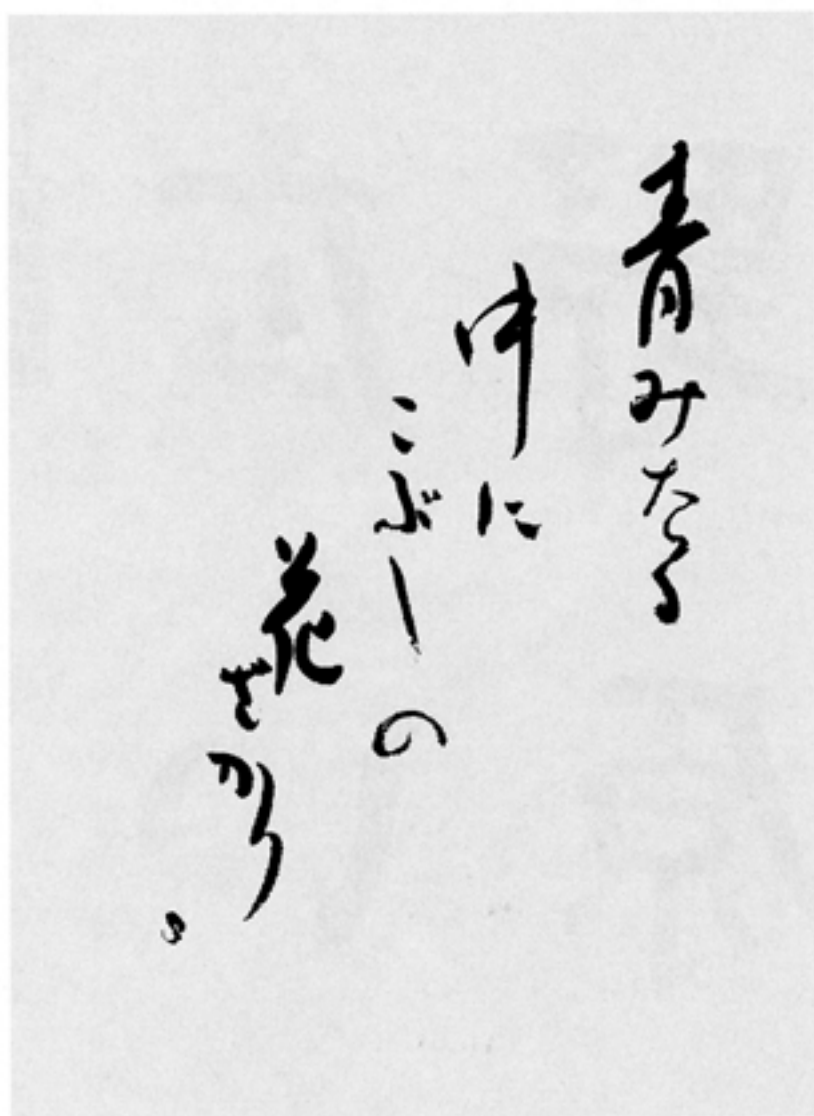 青みたる
中に
こぶしの
花ざかり